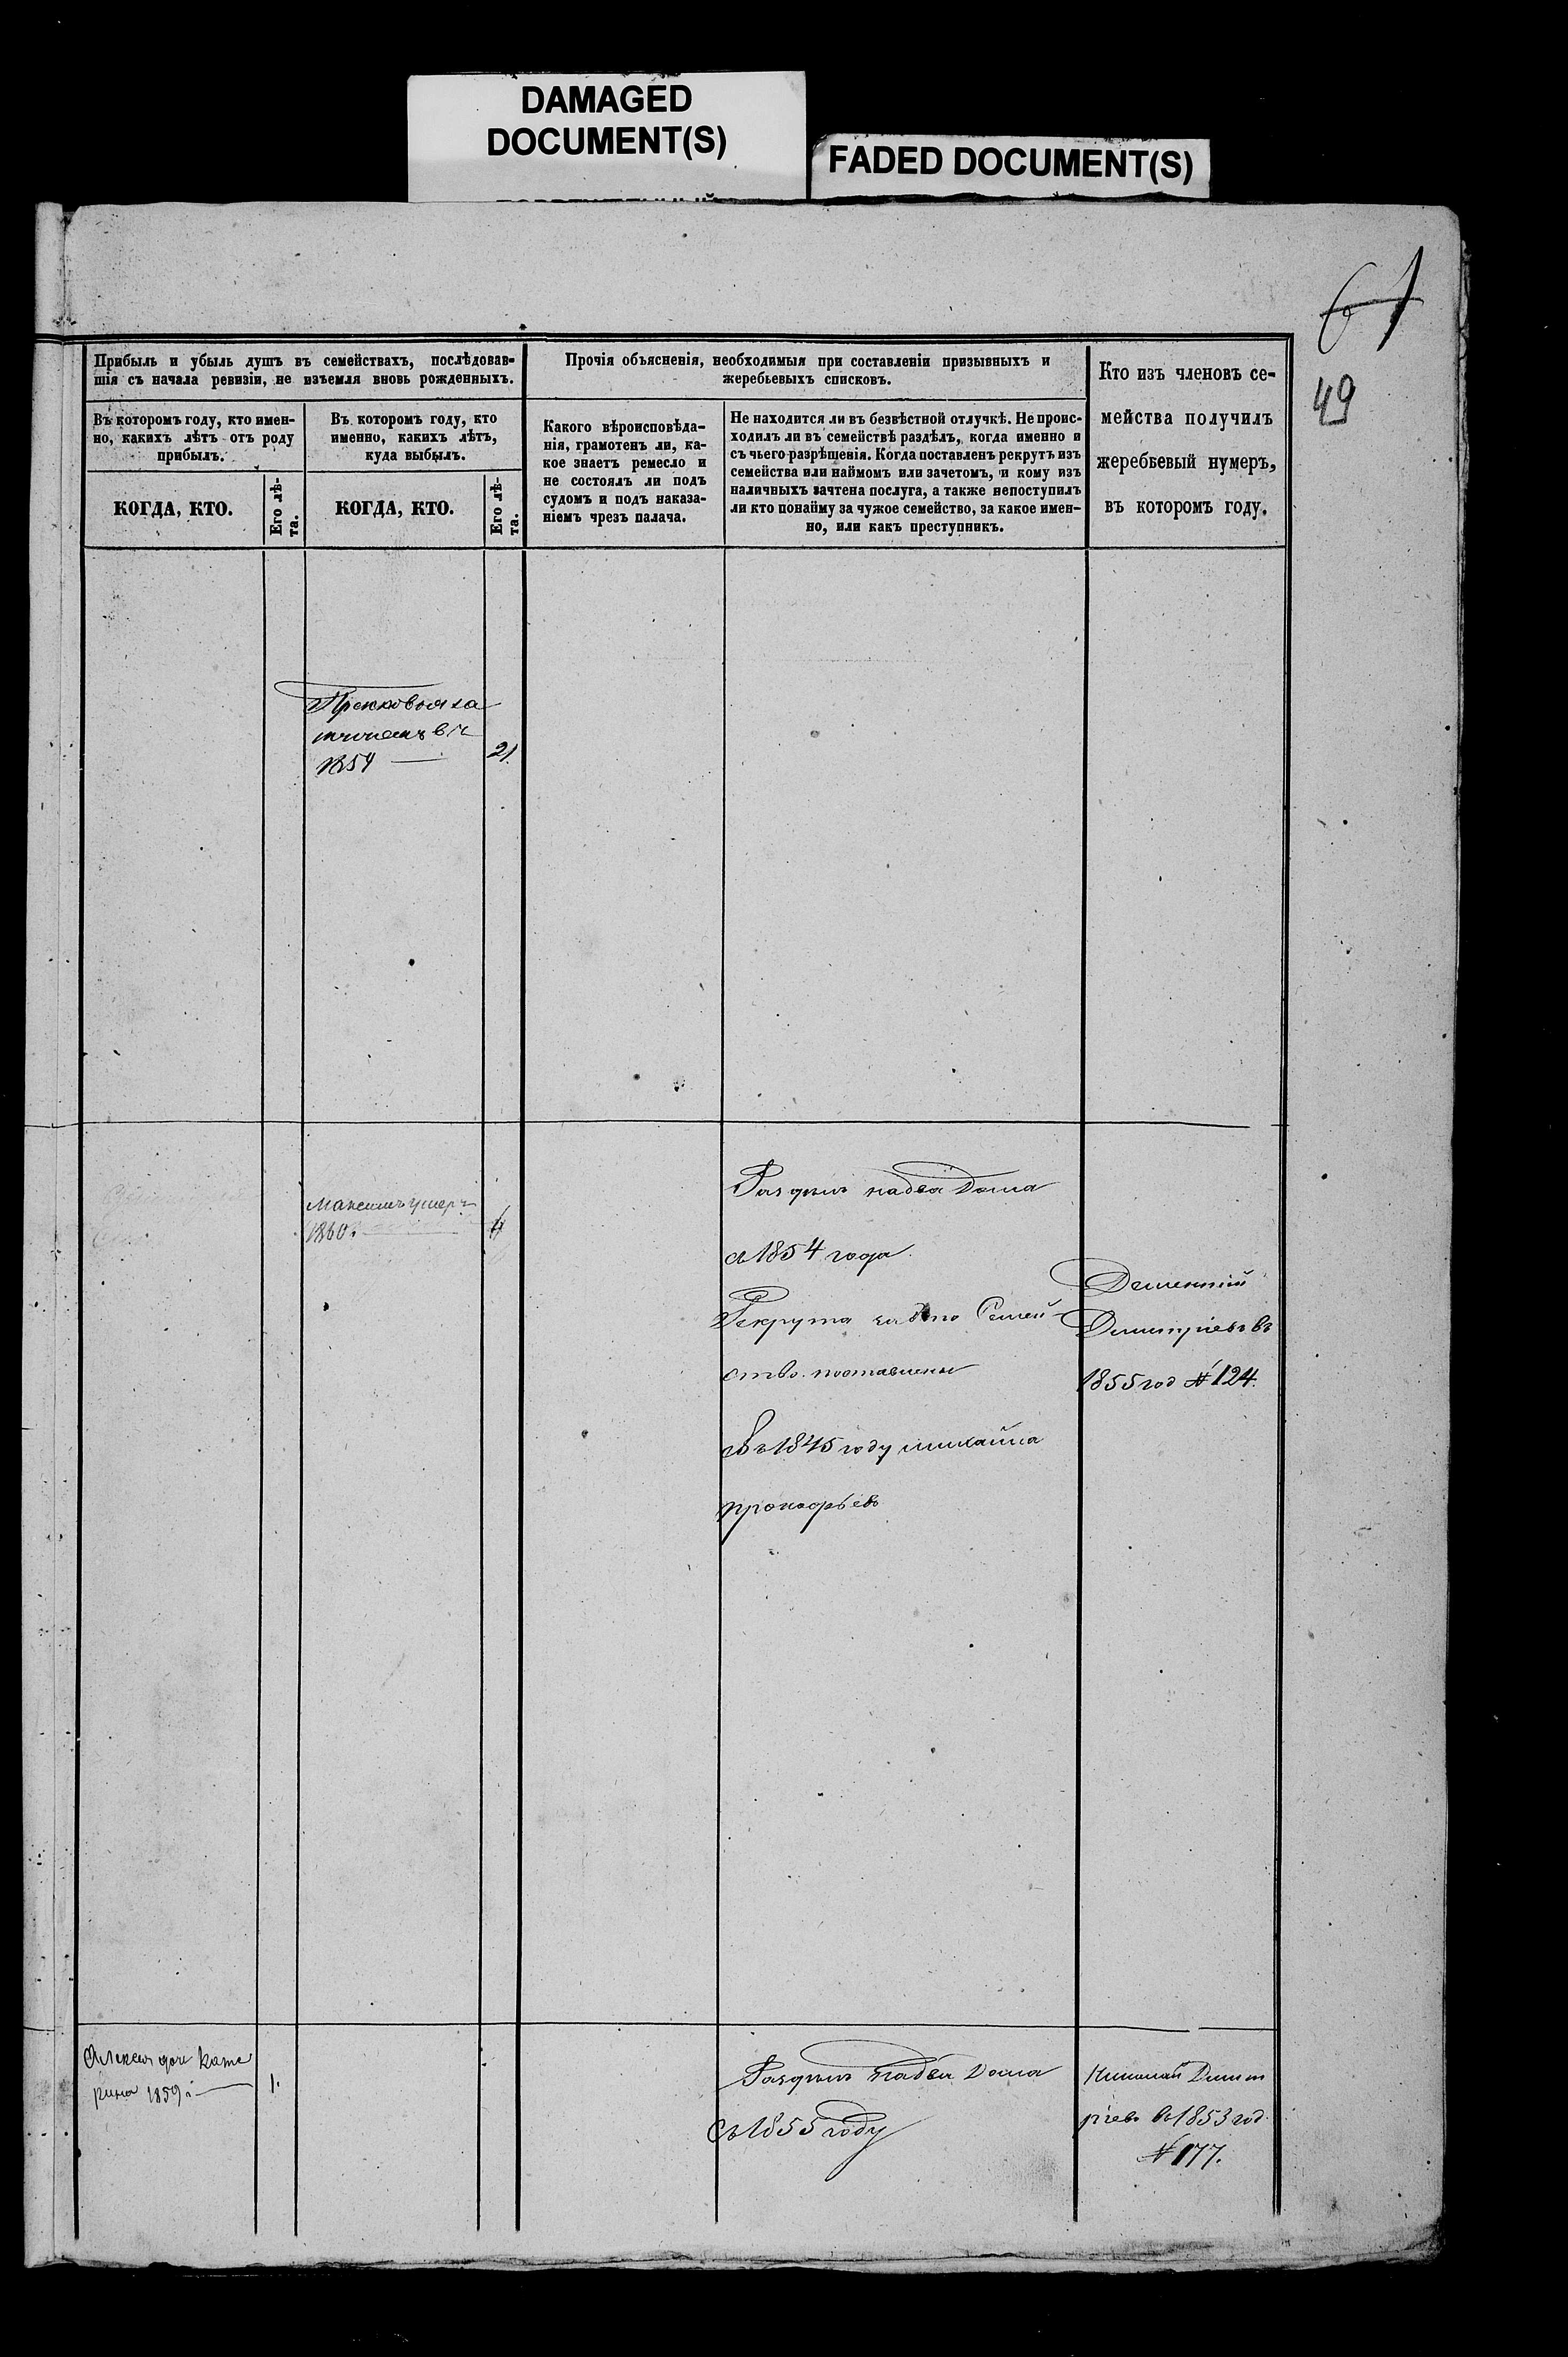 DAMAGED
DOCUMENT(S)
FADED DOCUMENT(S)
61
49
Прибыль и убыль душъ въ семействахъ, послѣдовав-
шія съ начала ревизіи, не изъемля вновь рожденныхъ.
Въ которомъ году, кто имен-
но, какихъ лѣтъ отъ роду
прибылъ.
КОГДА, КТО.
Его лѣ-
та.
Въ которомъ году, кто
именно, какихъ лѣтъ,
куда выбылъ.
КОГДА, КТО.
Его лѣ-
та.
Прочія объясненія, необходимыя при составленіи призывныхъ и
жеребьевыхъ списковъ.
Какого вѣроисповѣда-
нія, грамотенъ ли, ка-
кое знаетъ ремесло и
не состоялъ ли подъ
судомъ и подъ наказа-
ніемъ чрезъ палача.
Не находится ли въ безвѣстной отлучкѣ. Не проис-
ходилъ ли въ семействѣ раздѣлъ, когда именно и
съ чьего разрѣшенія. Когда поставленъ рекрутъ изъ
семейства или наймомъ или зачетомъ, и кому изъ
наличныхъ зачтена послуга, а также непоступилъ
ли кто понайму за чужое семейство, за какое имен-
но, или какъ преступникъ.
Кто изъ членовъ се-
мейства получилъ
жеребьевый нумеръ,
въ которомъ году.
Прасковья за
въ
1854
21
Максимъ умеръ
1860.
Раздѣлъ на два Дома
съ 1854 года
Рекрута за Семей-
ство поставлены
Въ 1845 году михайла
прокофьевъ
Дементій
Димитріевъ въ
1855 год № 124.
Алексея дочь Кате
рина 1859 г
1.
Раздѣлъ на два Дома
Съ 1855 году
Николай Димит
ріевъ въ 1853 год
№ 177.